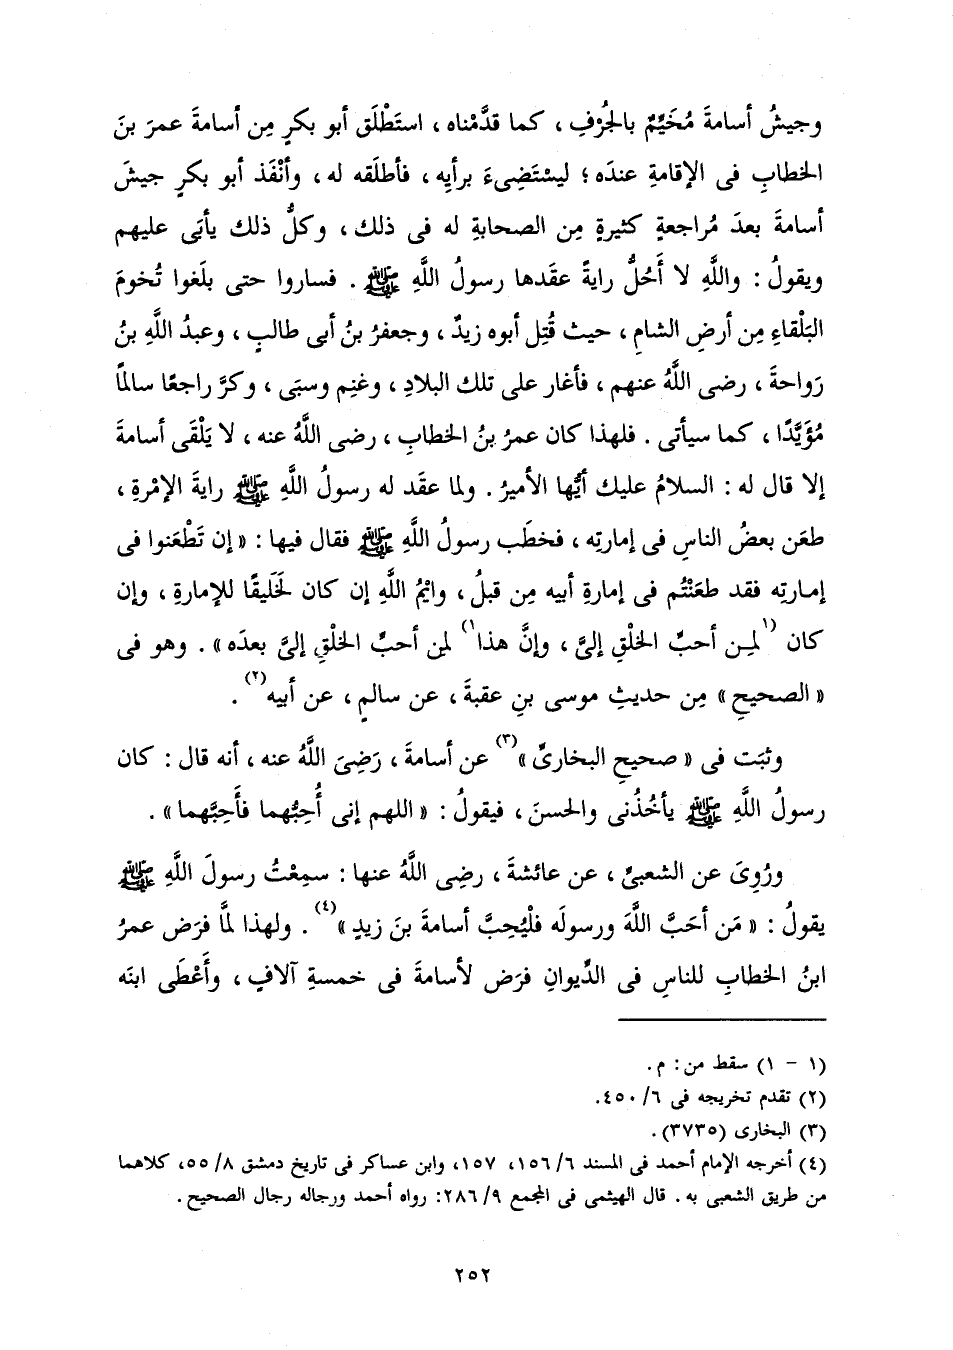 وجيشُ أسامةَ مُخَيِّمٌ بالجُرْفِ ، كما قدَّمْناه ، استَطْلَق أبو بكرٍ مِن أسامةَ عمرَ بنَ
الخطابِ فى الإقامةِ عندَه ؛ ليسْتَضِىءَ برأيِه ، فأطلَقه له ، وأنْفَذ أبو بكرٍ جيشَ
أسامةَ بعدَ مُراجعةٍ كثيرةٍ مِن الصحابةِ له فى ذلك ، وكلُّ ذلك يأبَى عليهم
ويقولُ : واللَّهِ لا أَحُلُّ رايةً عقَدها رسولُ اللَّهِ ﷺ . فساروا حتى بلَغوا تُخومَ
البَلْقاءِ مِن أرضِ الشامِ ، حيث قُتِل أبوه زيدٌ ، وجعفرُ بنُ أبى طالبٍ ، وعبدُ اللَّهِ بنُ
رَواحةَ ، رضى اللَّهُ عنهم ، فأغار على تلك البلادِ ، وغنِم وسبَى ، وكرَّ راجعًا سالمًا
مُؤَيَّدًا ، كما سيأتى . فلهذا كان عمرُ بنُ الخطابِ ، رضى اللَّهُ عنه ، لا يَلْقَى أسامةَ
إلا قال له : السلامُ عليك أيُّها الأميرُ . ولما عقَد له رسولُ اللَّهِ ﷺ رايةَ الإمْرةِ ،
طعَن بعضُ الناسِ فى إمارتِه ، فخطَب رسولُ اللَّهِ ﷺ فقال فيها : « إن تَطْعَنوا فى
إمارتِه فقد طعَنْتُم فى إمارةِ أبيه مِن قبلُ ، وايْمُ اللَّهِ إن كان لَخَليقًا للإمارةِ ، وإن
كان (١ لمِن أحبِّ الخلْقِ إلىَّ ، وإنَّ هذا ١) لمِن أحبِّ الخلْقِ إلىَّ بعدَه » . وهو فى
« الصحيحِ » مِن حديثِ موسى بنِ عقبةَ ، عن سالمٍ ، عن أبيه (٢) .
وثبَت فى « صحيحِ البخارىِّ » (٣) عن أسامةَ ، رَضِىَ اللَّهُ عنه ، أنه قال : كان
رسولُ اللَّهِ ﷺ يأخُذُنى والحسنَ ، فيقولُ : « اللهم إنى أُحِبُّهما فأَحِبَّهما » .
ورُوِىَ عن الشعبىِّ ، عن عائشةَ ، رضِى اللَّهُ عنها : سمِعْتُ رسولَ اللَّهِ ﷺ
يقولُ : « مَن أحَبَّ اللَّهَ ورسولَه فلْيُحِبَّ أسامةَ بنَ زيدٍ » (٤) . ولهذا لمَّا فرَض عمرُ
ابنُ الخطابِ للناسِ فى الدِّيوانِ فرَض لأسامةَ فى خمسةِ آلافٍ ، وأَعْطَى ابنَه
(١ - ١) سقط من : م .
(٢) تقدم تخريجه فى ٦/ ٤٥٠.
(٣) البخارى (٣٧٣٥) .
(٤) أخرجه الإمام أحمد فى المسند ٦/ ١٥٦، ١٥٧، وابن عساكر فى تاريخ دمشق ٨/ ٥٥، كلاهما
من طريق الشعبى به . قال الهيثمى فى المجمع ٩/ ٢٨٦: رواه أحمد ورجاله رجال الصحيح .
٢٥٢